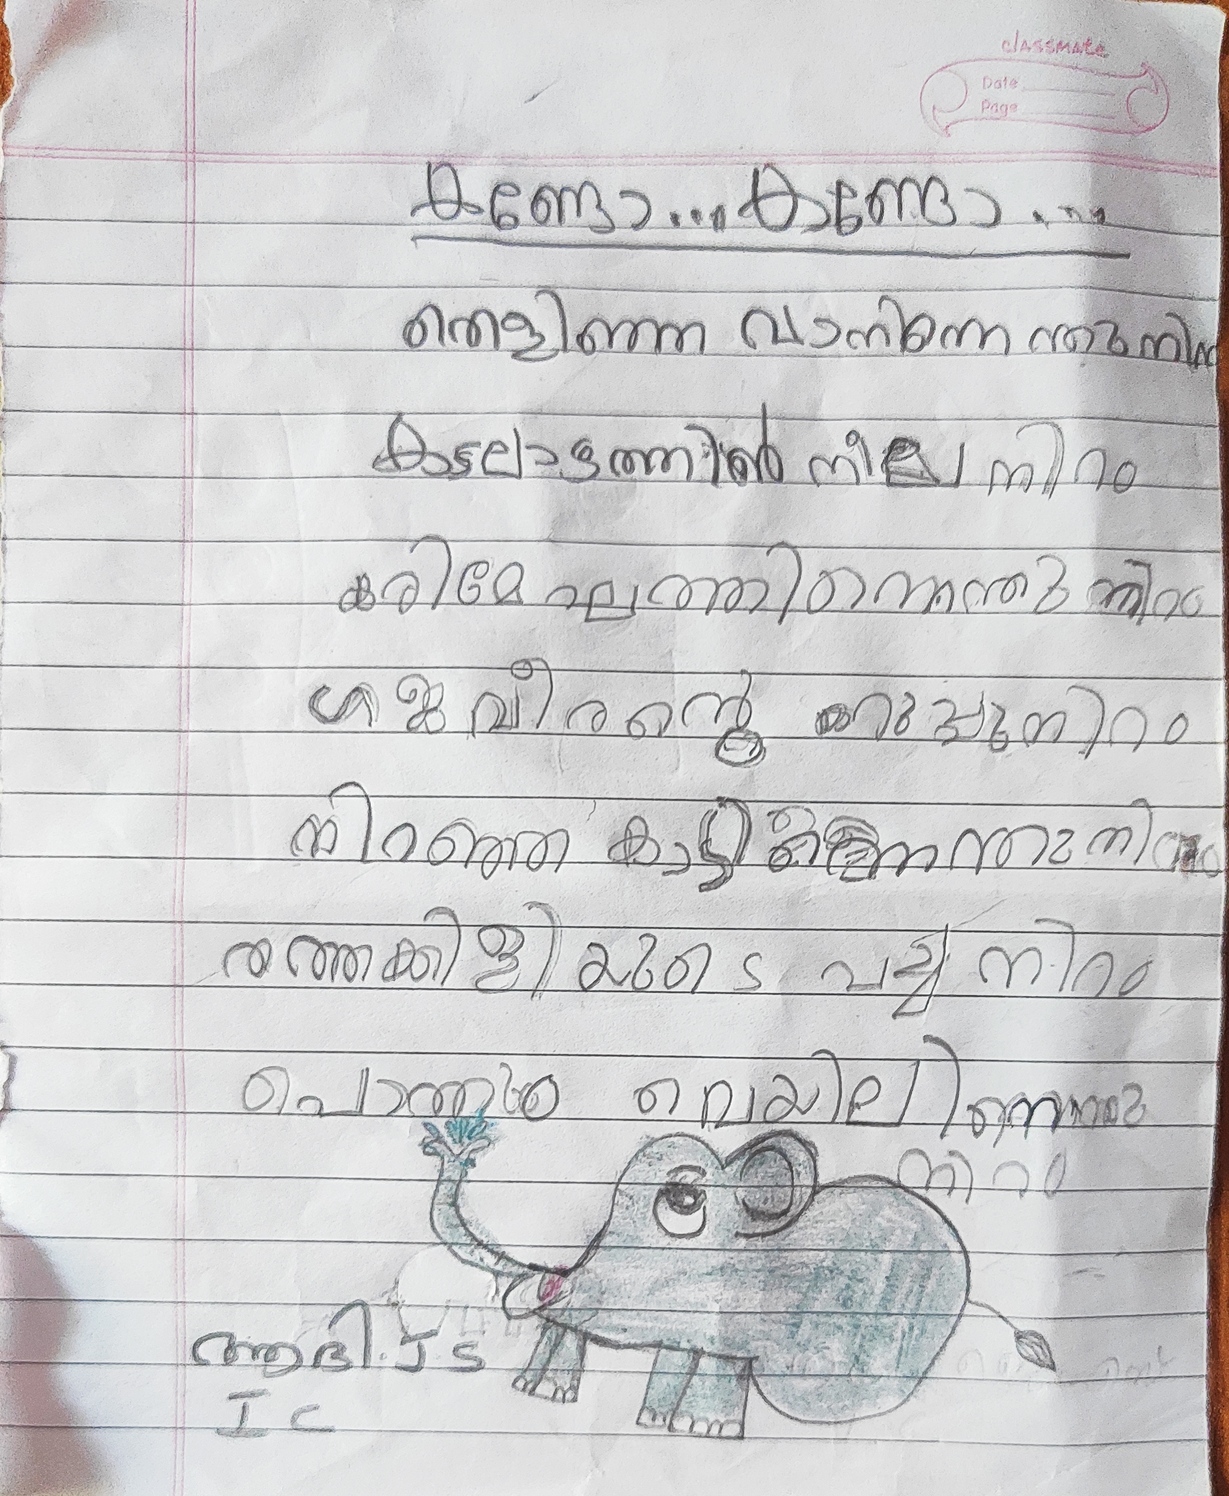 classmate
Date
Page
കണ്ടോ...കണ്ടോ....
തെളിഞ്ഞ വാനിന്നെന്തുനിറം
കടലാഴത്തിൻ നീല നിറം
കരിമേഘത്തിന്നെന്തു നിറം
ഗജവീരന്റെ കറുപ്പുനിറം
നിറഞ്ഞ കാട്ടിന്നെന്തുനിറം
തത്തക്കിളിയുടെ പച്ച നിറം
വെയിലിന്നെന്തു
നിറം
ആദി.J S
I C